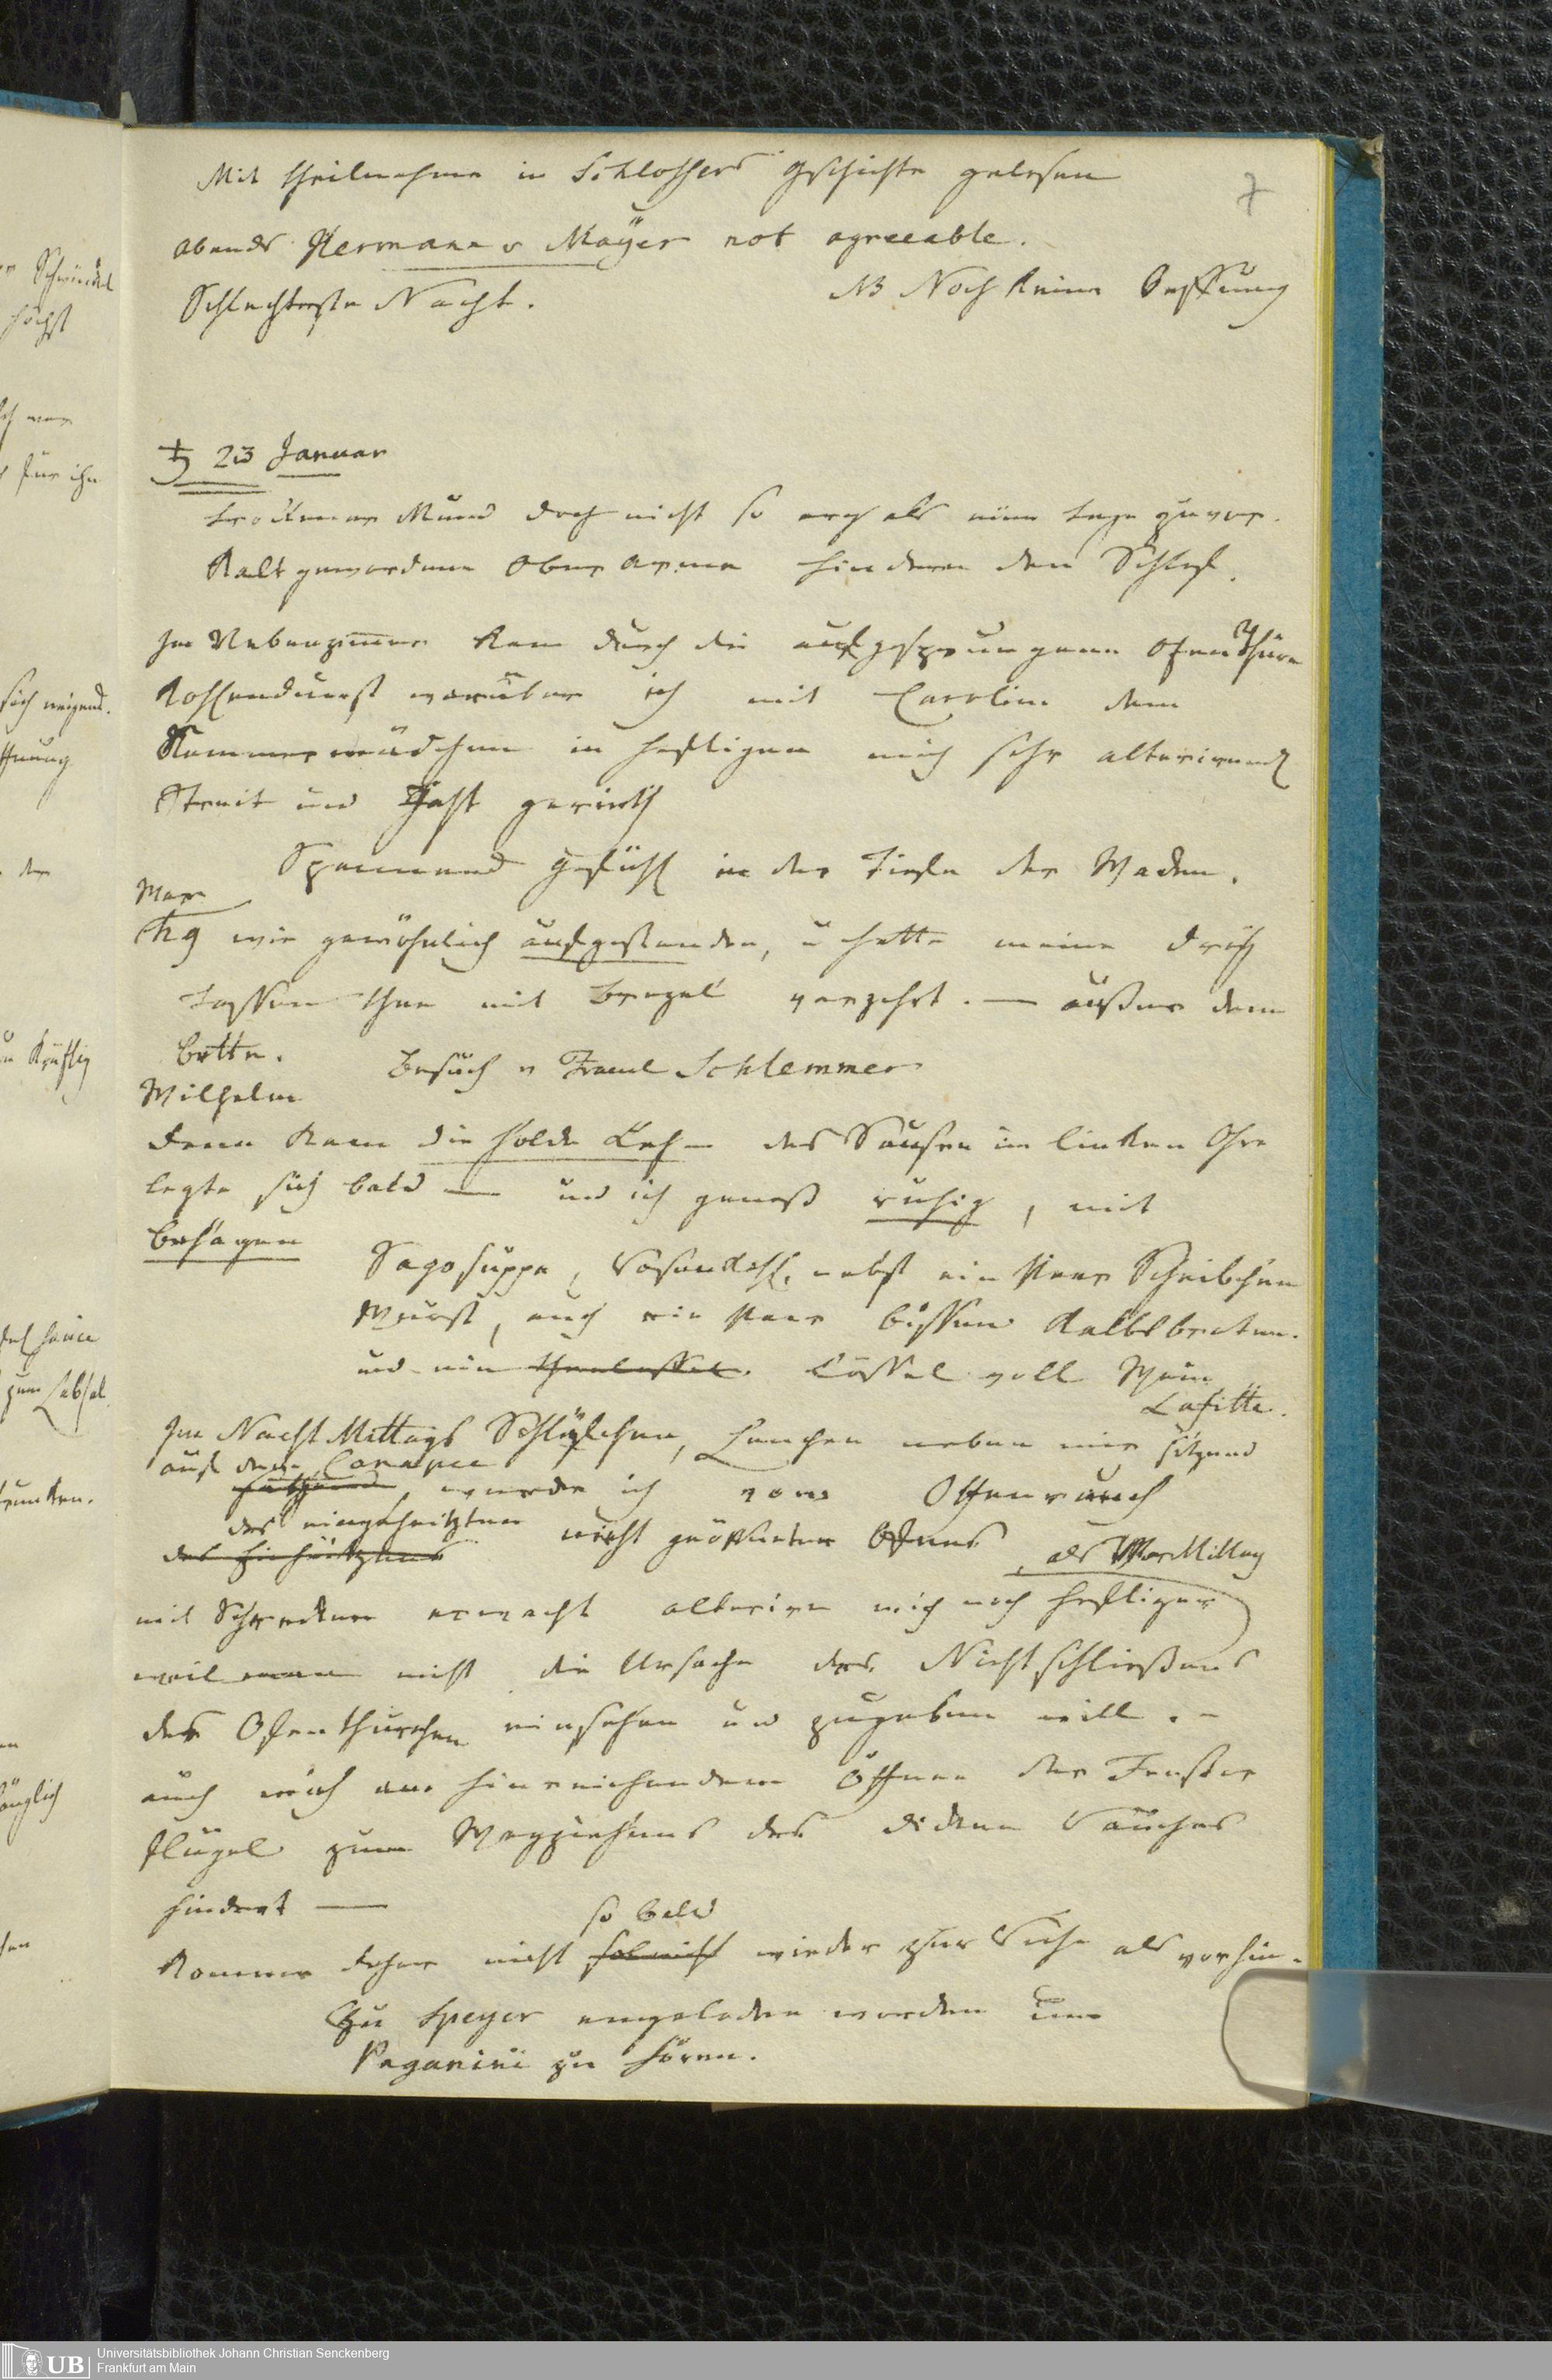 Mit theilnahme in Schlossers Gschichte gelesen
7
abends Hermann v Mäyer not agreeable.
Schlechteste Nacht.
NB Noch keine Oeffnung
♄ 23 Januar
trockener Mund doch nicht so arg als eine tage zuvor.
Kalt gewordene Ober arme hinderen den Schlaf.
Im Nebenzimmer kam durch die aufgesprungene Ofen Thüre
Kohlendunst worüber ich mit Carolin dem
Kammermädchen in heftigen mich sehr alterirend
Streit und Hast gerieth
Spannend Gefühl in der Tiefe der Waden.
Mar
h 9 wie gewöhnlich aufgestanden, u hatte meine drey
Tassen Thee mit Brezel verzehrt. — ausser dem
bette.
Besuch v Freund Schlemmer
Wilhelm
Dann kam die holde das Sausen im linken Ohre
legte sich bald — und ich genoß ruhig, mit
behagen
Sagosuppe, Rosenkohl, nebst ein Paar Scheibchen
Wurst, auch ein Paar bissen Kalbsbraten.
und ein theelöffel. Löffel voll Wein
Lafitte.
Im Nacht Mittags Schläfchen, Lenchen neben mir sitzend
auf dem Canapee
wurde ich vom Offenrauch
des eingeheitzten
nicht geöffneten Ofens, als Vor Mittag
mit Schrecken erwacht alterire mich noch heftiger
weil man nicht die Ursache des Nichtschließens
des Ofenthürchen einsehen und zugeben will. -
auch mich am hinreichendem Öffnen der Fenster
flügel zum Wegziehens des dicken Rauches
hindert —
so bald
Komme daher nicht wieder zur Ruhe als vorhin.
Zu Speyer eingeladen worden um
Paganini zu hören.
Universitätsbibliothek Johann Christian Senckenberg
Frankfurt am Main
UB